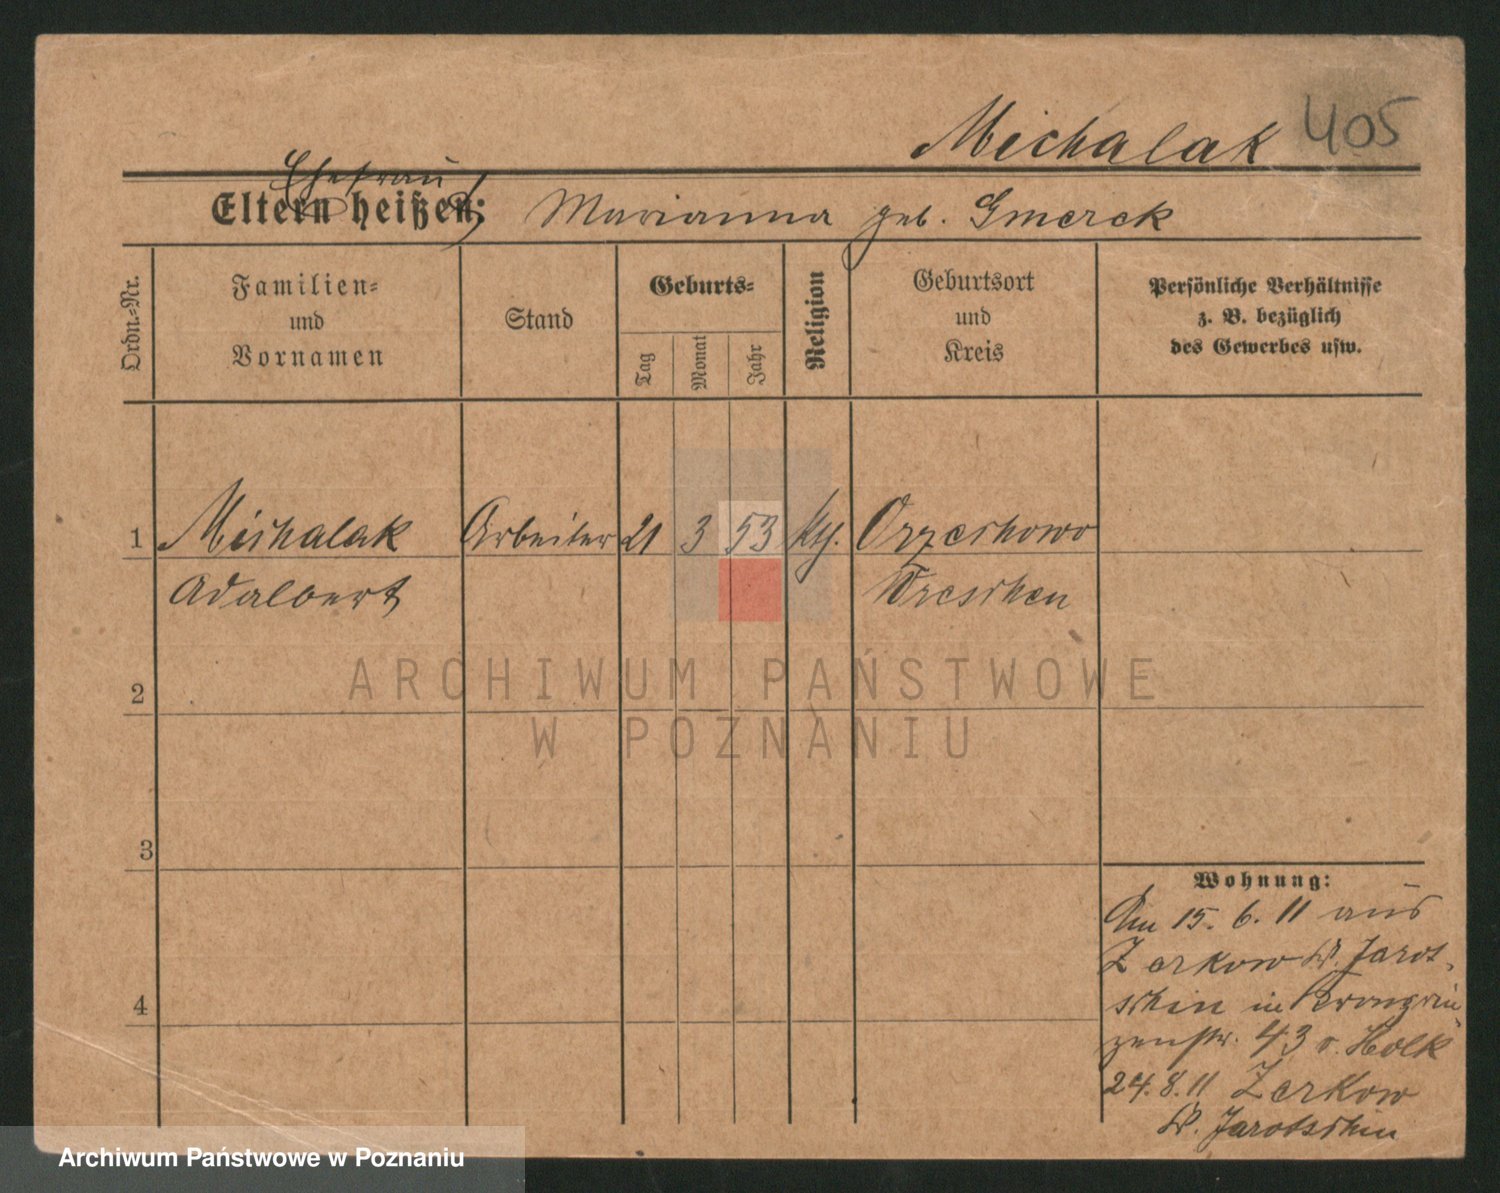 Michalak 405
Ehefrau
Eltern heißen: Marianna geb. Gmerek
Ordn.-Nr.
Familien-
und
Vornamen
Stand
Geburts-
Tag
Monat
Jahr
Religion
Geburtsort
und
Kreis
Persönliche Verhältnisse
z. B. bezüglich
des Gewerbes usw.
1 Michalak Arbeiter 21 3 53 kth. Orzechowo
Adalbert Wreschen
ARCHIWUM PAŃSTWOWE
W POZNANIU
2
3
4
Wohnung:
Am 15. 6. 11 aus
Zerkow Kr. Jarot-
schin in Kronprin
zenstr. 43 v. Holk
24. 8. 11 Zerkow
Kr. Jarotschin
Archiwum Państwowe w Poznaniu